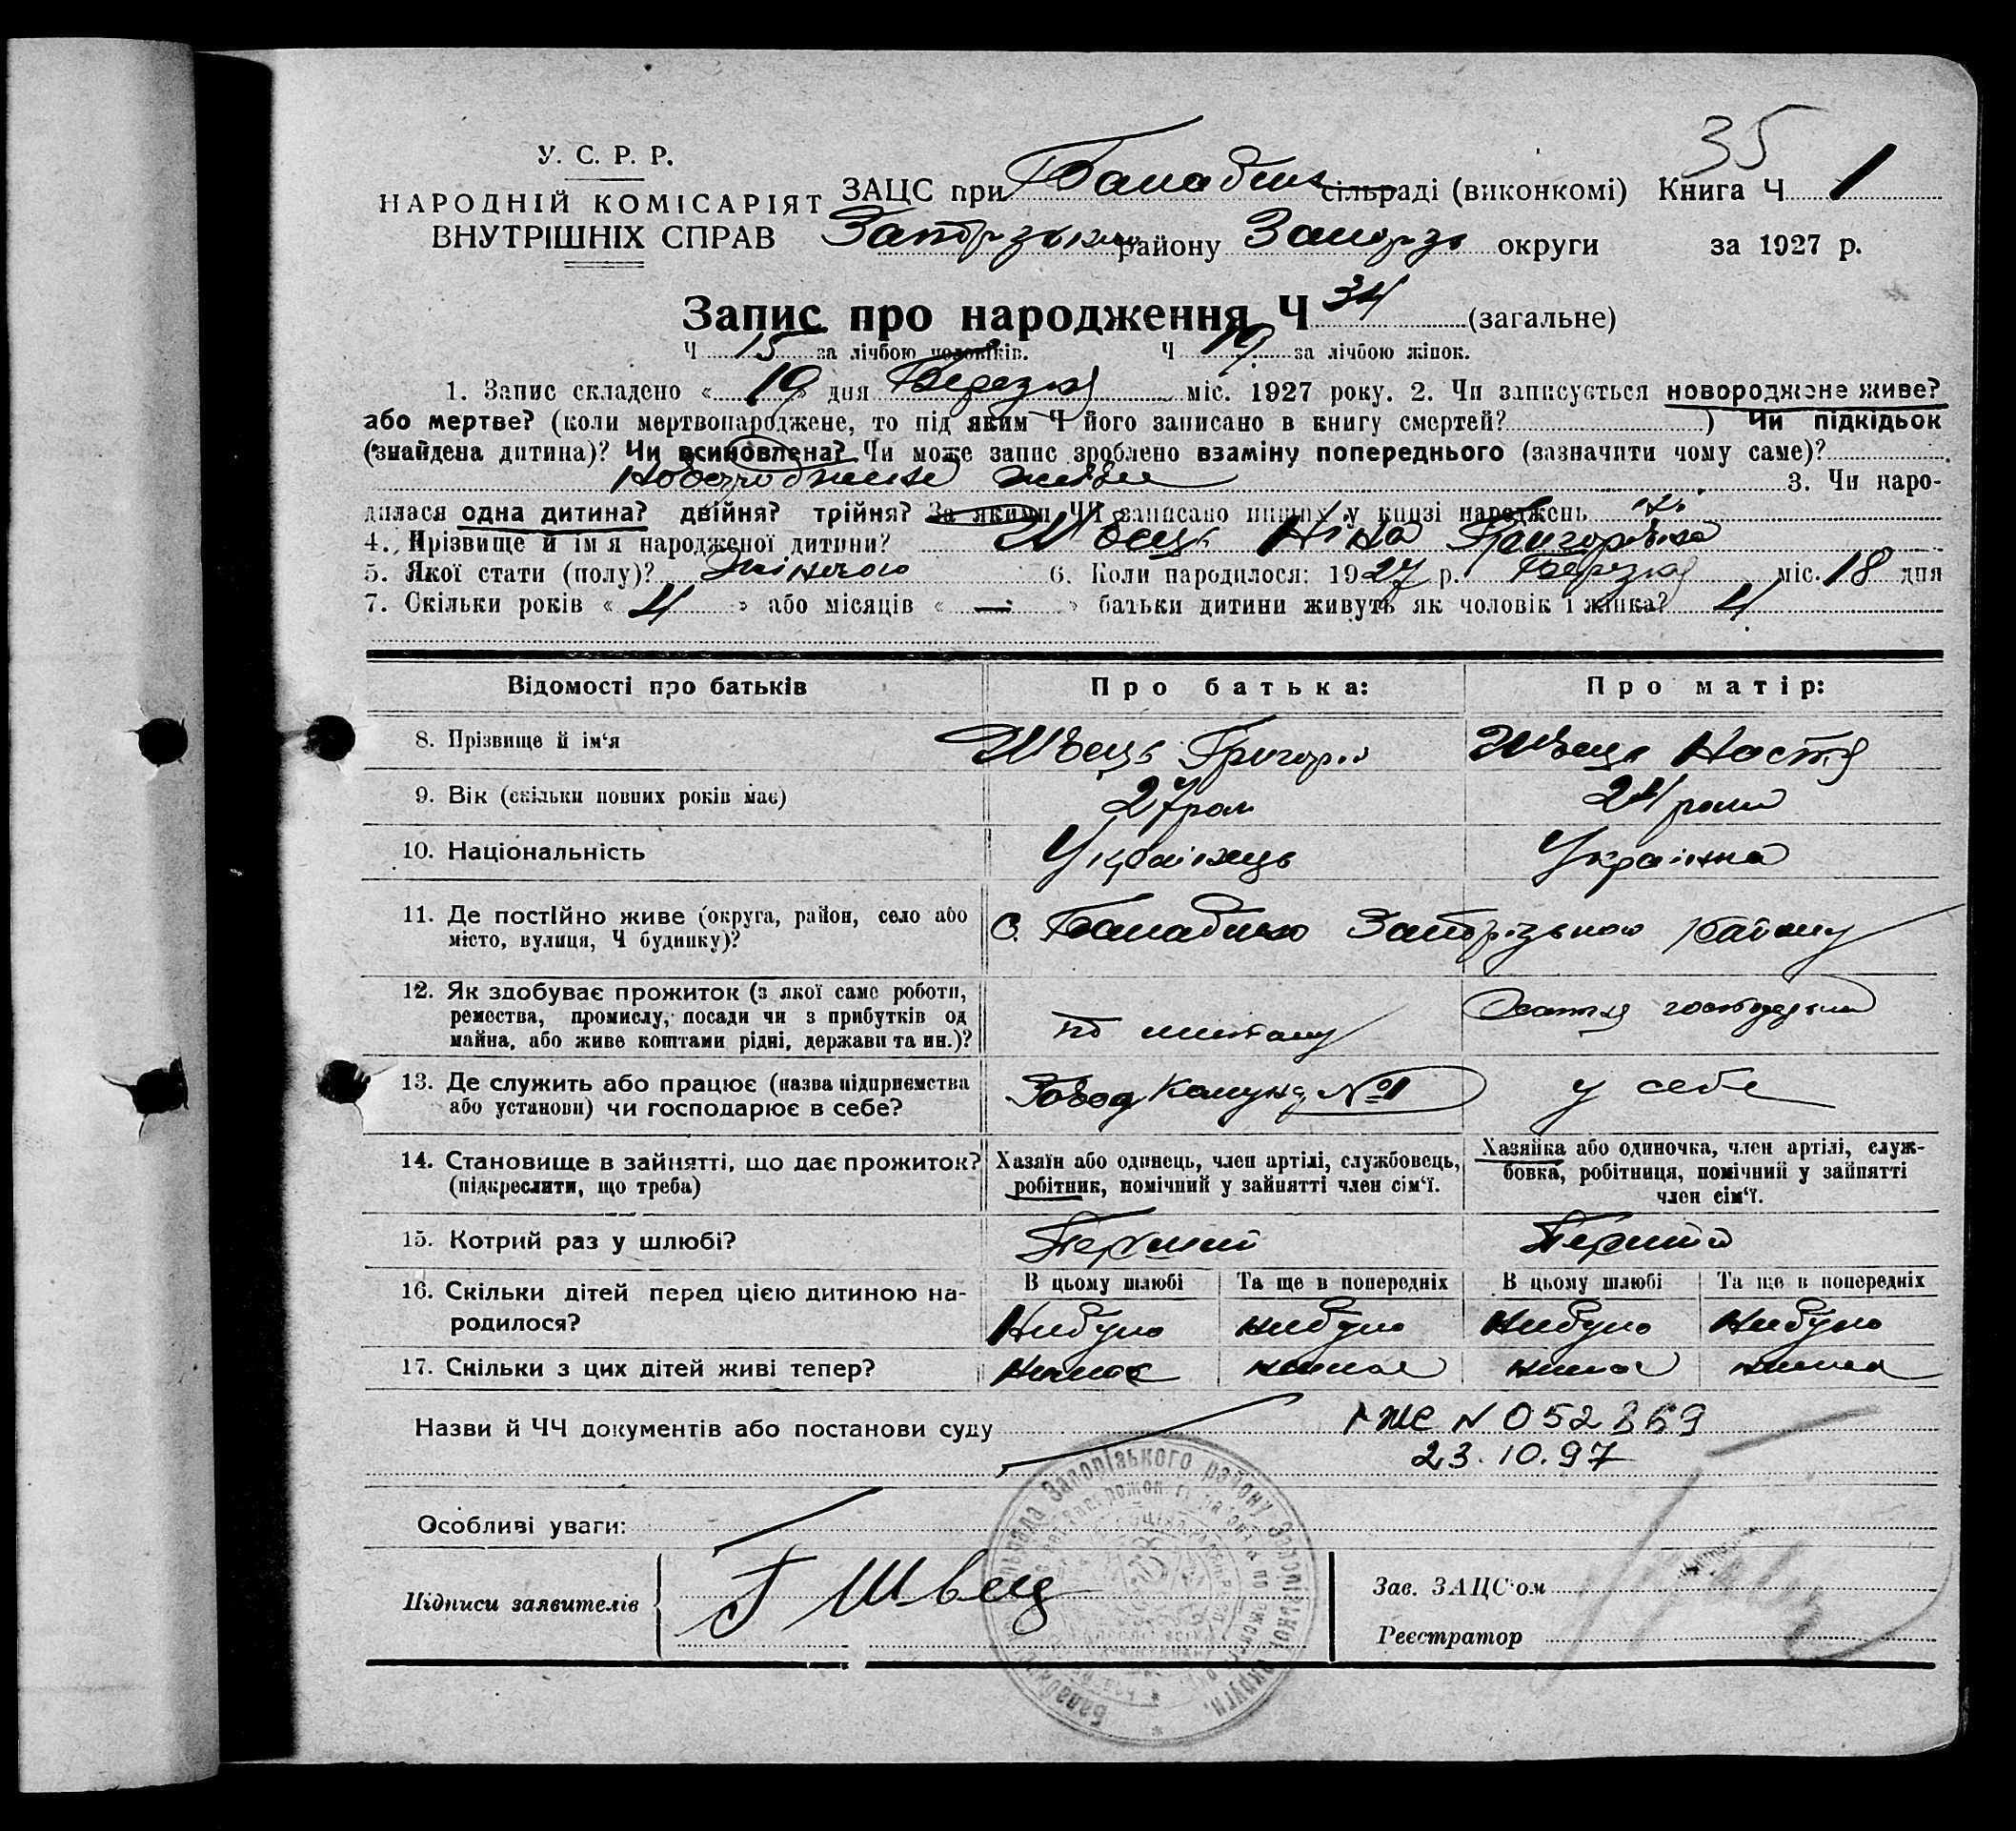 35
У. С. Р. Р.
НАРОДНІЙ КОМІСАРІЯТ
ВНУТРІШНІХ СПРАВ
ЗАЦС при Балабинс сільраді (виконкомі) Книга Ч 1
Запорізьким району Запорізь округи за 1927 р.
Запис про народження Ч 34 (загальне)
Ч 15 за лічбою чоловіків. Ч 19 за лічбою жінок.
1. Запис складено « 19 » дня Березня міс. 1927 року. 2. Чи записується новороджене живе?
або мертве? (коли мертвонароджене, то під яким Ч його записано в книгу смертей? ) Чи підкідьок
(знайдена дитина)? Чи всиновлена? Чи може запис зроблено взаміну попереднього (зазначити чому саме)?
Новороджене живе 3. Чи наро-
дилася одна дитина? двійня? трійня? За якими ЧЧ записано инших у книзі народжень
4. Прізвище й імя народженої дитини? Швець Ніна Григорівна
5. Якої стати (полу)? Жіночою 6. Коли народилося: 1927 р. Березня міс. 18 дня
7. Скільки років « 4 » або місяців « — » батьки дитини живуть як чоловік і жінка? 4
Відомості про батьків Про батька: Про матір:
8. Прізвище й ім‘я Швець Григорій Швець Настя
9. Вік (скільки повних років має) 27 рок 24 роки
10. Національність Українець Українка
11. Де постійно живе (округа, район, село або
місто, вулиця, Ч будинку)?
С. Балабино Запорізького району
12. Як здобуває прожиток (з якої саме роботи,
ремества, промислу, посади чи з прибутків од
майна, або живе коштами рідні, держави та ин.)?
по
Хатня господарка
13. Де служить або працює (назва підприємства
або установи) чи господарює в себе?
Завод Комунар №1 у себе
14. Становище в зайнятті, що дає прожиток?
(підкреслити, що треба)
Хазяїн або одинець, член артілі, службовець,
робітник, помічний у зайнятті член сім‘ї.
Хазяйка або одиночка, член артілі, служ-
бовка, робітниця, помічний у зайнятті
член сім‘ї.
15. Котрий раз у шлюбі? Перший Перший
16. Скільки дітей перед цією дитиною на-
родилося?
В цьому шлюбі Та ще в попередніх В цьому шлюбі Та ще в попередніх
Небуло небуло небуло небуло
17. Скільки з цих дітей живі тепер? Нимає нимає нимає нимає
Назви й ЧЧ документів або постанови суду
І-ЖС N 052869
23.10.97
Особливі уваги:
Підписи заявителів Г Швец
Зав. ЗАЦС‘ом
Реєстратор
Запорізького району Запорізької округи.